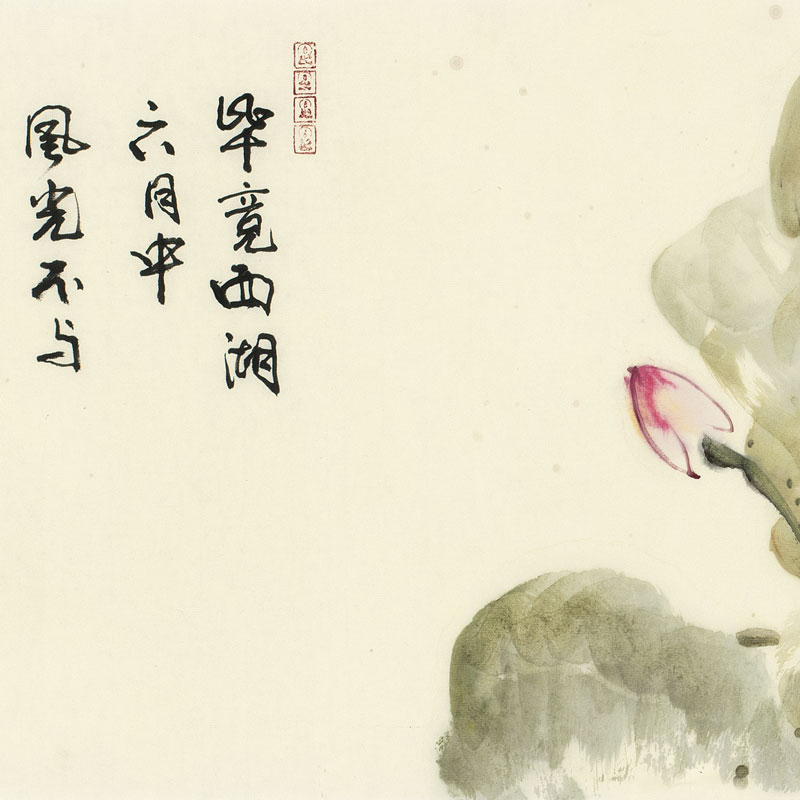 毕竟西湖
六月中
風光不与